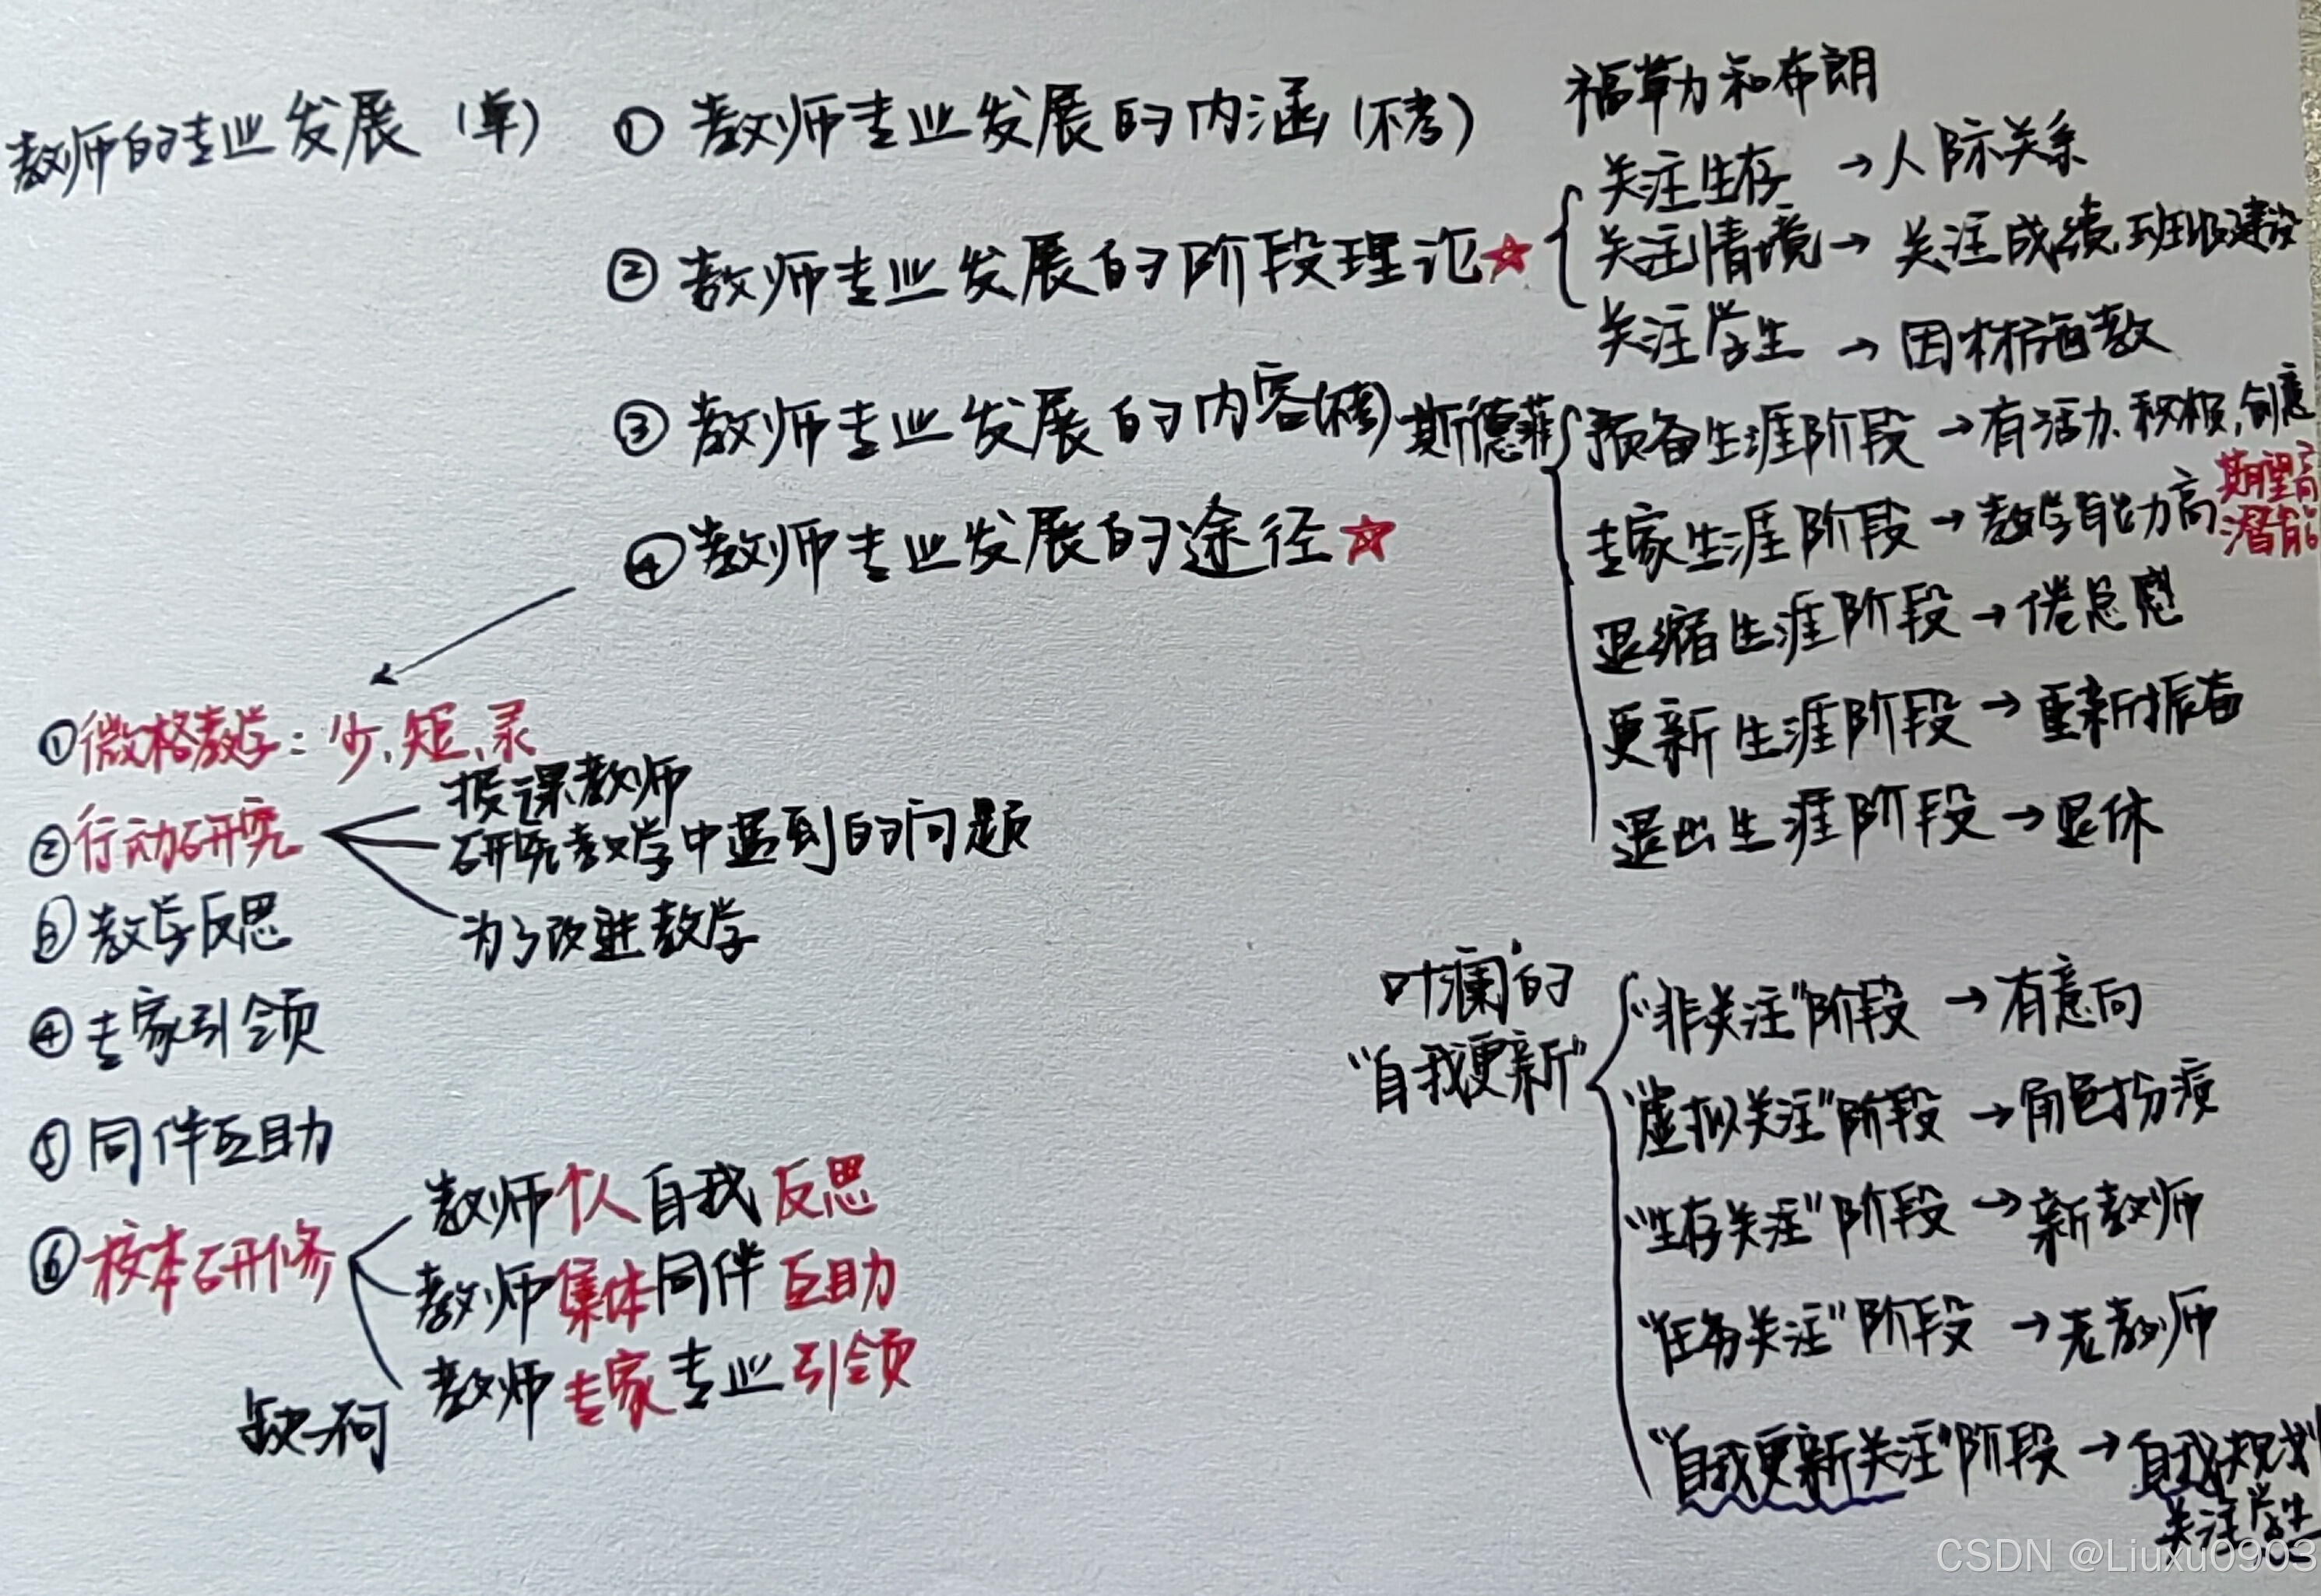 教师的专业发展（单）
① 教师专业发展的内涵（不考）
② 教师专业发展的阶段理论☆
③ 教师专业发展的内容（不考）
④ 教师专业发展的途径☆
福勒和布朗
关注生存 → 人际关系
关注情境 → 关注成绩、班级建设
关注学生 → 因材施教
斯德菲
预备生涯阶段 → 有活力、积极、创意
专家生涯阶段 → 教学能力高 期望高
潜能
退缩生涯阶段 → 倦怠感
更新生涯阶段 → 重新振奋
退出生涯阶段 → 退休
叶澜的
“自我更新”
“非关注”阶段 → 有意向
“虚拟关注”阶段 → 角色扮演
“生存关注”阶段 → 新教师
“任务关注”阶段 → 老教师
“自我更新关注”阶段 → 自我规划
关注学生
①微格教学：少、短、录
②行动研究
授课教师
研究教学中遇到的问题
为了改进教学
③教学反思
④专家引领
⑤同伴互助
⑥校本研修
教师个人自我反思
教师集体同伴互助
教师专家专业引领
缺一不可
CSDN @Liuxu0903